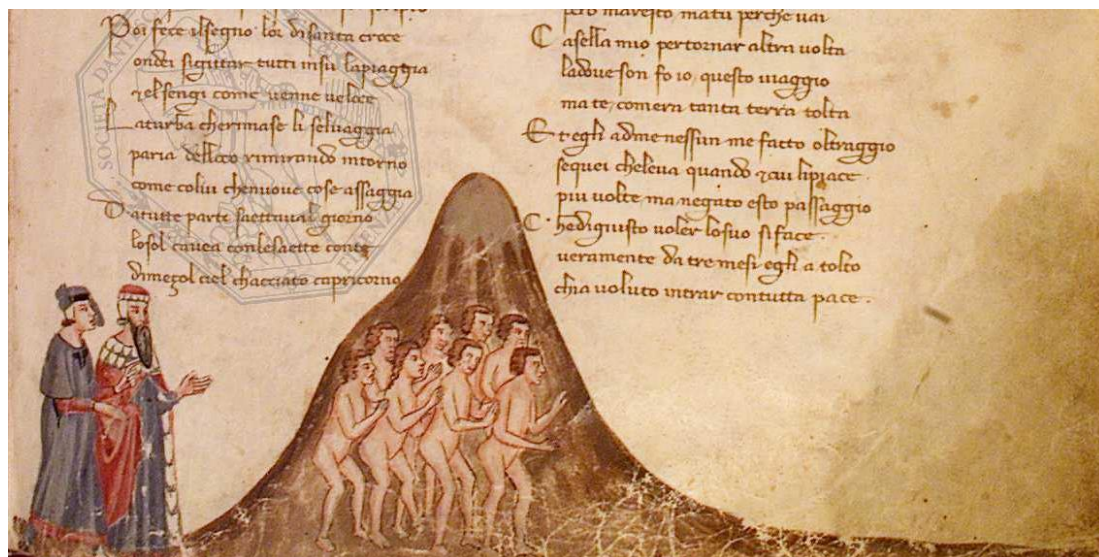 pero maresto ma tu perche vai
Poi fece il segno lor di santa croce
ondei sigittar tutti insu lapiaggia
et el sengi come venne veloce
La turba cherimase li seluaggia
paria delloco rimirando intorno
come colui chenuoue cose assaggia
Da tutte parte saettaual giorno
losol cauea conlesaette conte
dimezol ciel chacciato capricorno
Casella mio pertornar altra uolta
ladoue son fo io questo uiaggio
ma te comera tanta terra tolta
Et egli adme nessun me facto oltraggio
sequei cheleua quando et cui lipiace
piu uolte ma negato esto passaggio
Chediguisto uoler losuo siface
ueramente da tre mesi egli a tolto
chia uoluto intrar contutta pace
SOCIETÀ DANT